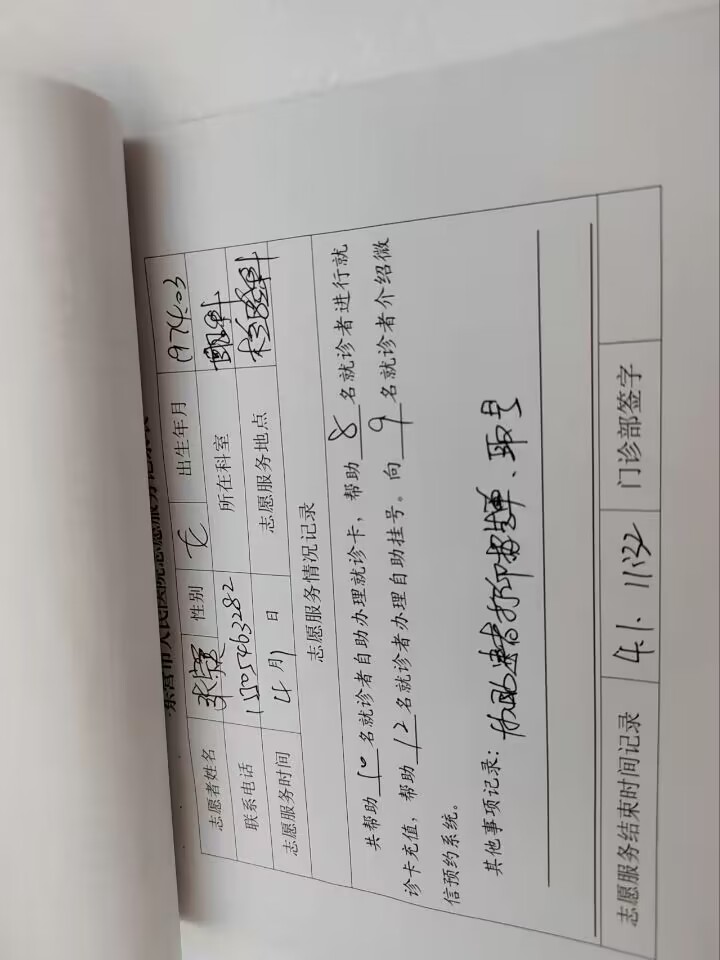 东营市人民医院志愿服务记录表
志愿者姓名 性别 女 出生年月 1974.03
联系电话 所在科室
志愿服务时间 4月1日 志愿服务地点 检验科
志愿服务情况记录
共帮助10名就诊者自助办理就诊卡，帮助8名就诊者进行就
诊卡充值，帮助12名就诊者办理自助挂号。向9名就诊者介绍微
信预约系统。
其他事项记录：协助患者打印报告单、取号
志愿服务结束时间记录 4.1. 11:22 门诊部签字